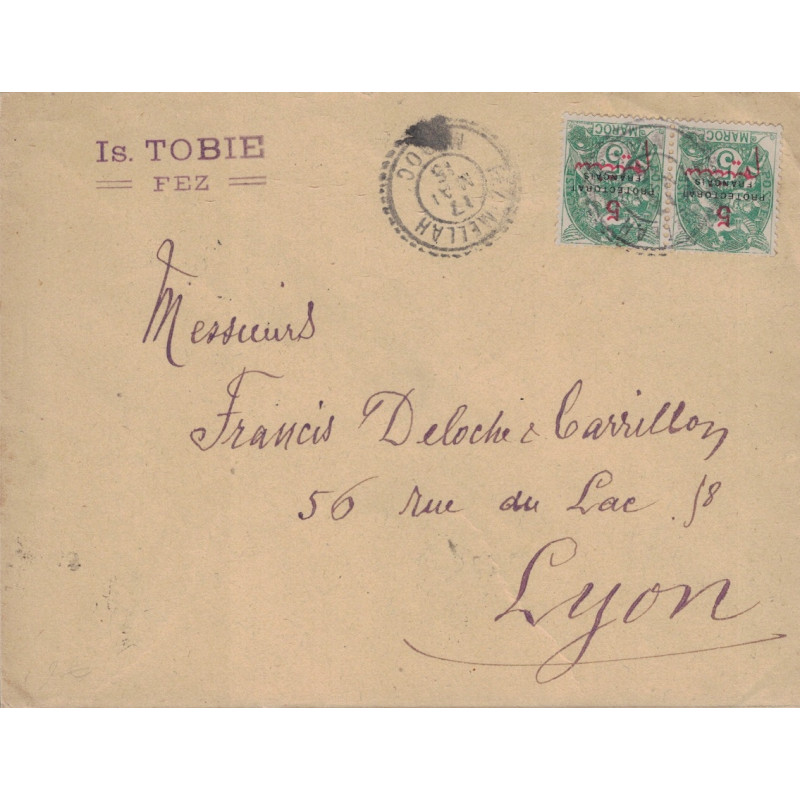 Is. TOBIE
FEZ
FEZ MELLAH
17
15
MAROC
MAROC
5
PROTECTORAT
FRANCAIS
5
MAROC
5
PROTECTORAT
FRANCAIS
5
Messieurs
Francis Deloche & Carrillon
56 rue du Lac 58
Lyon